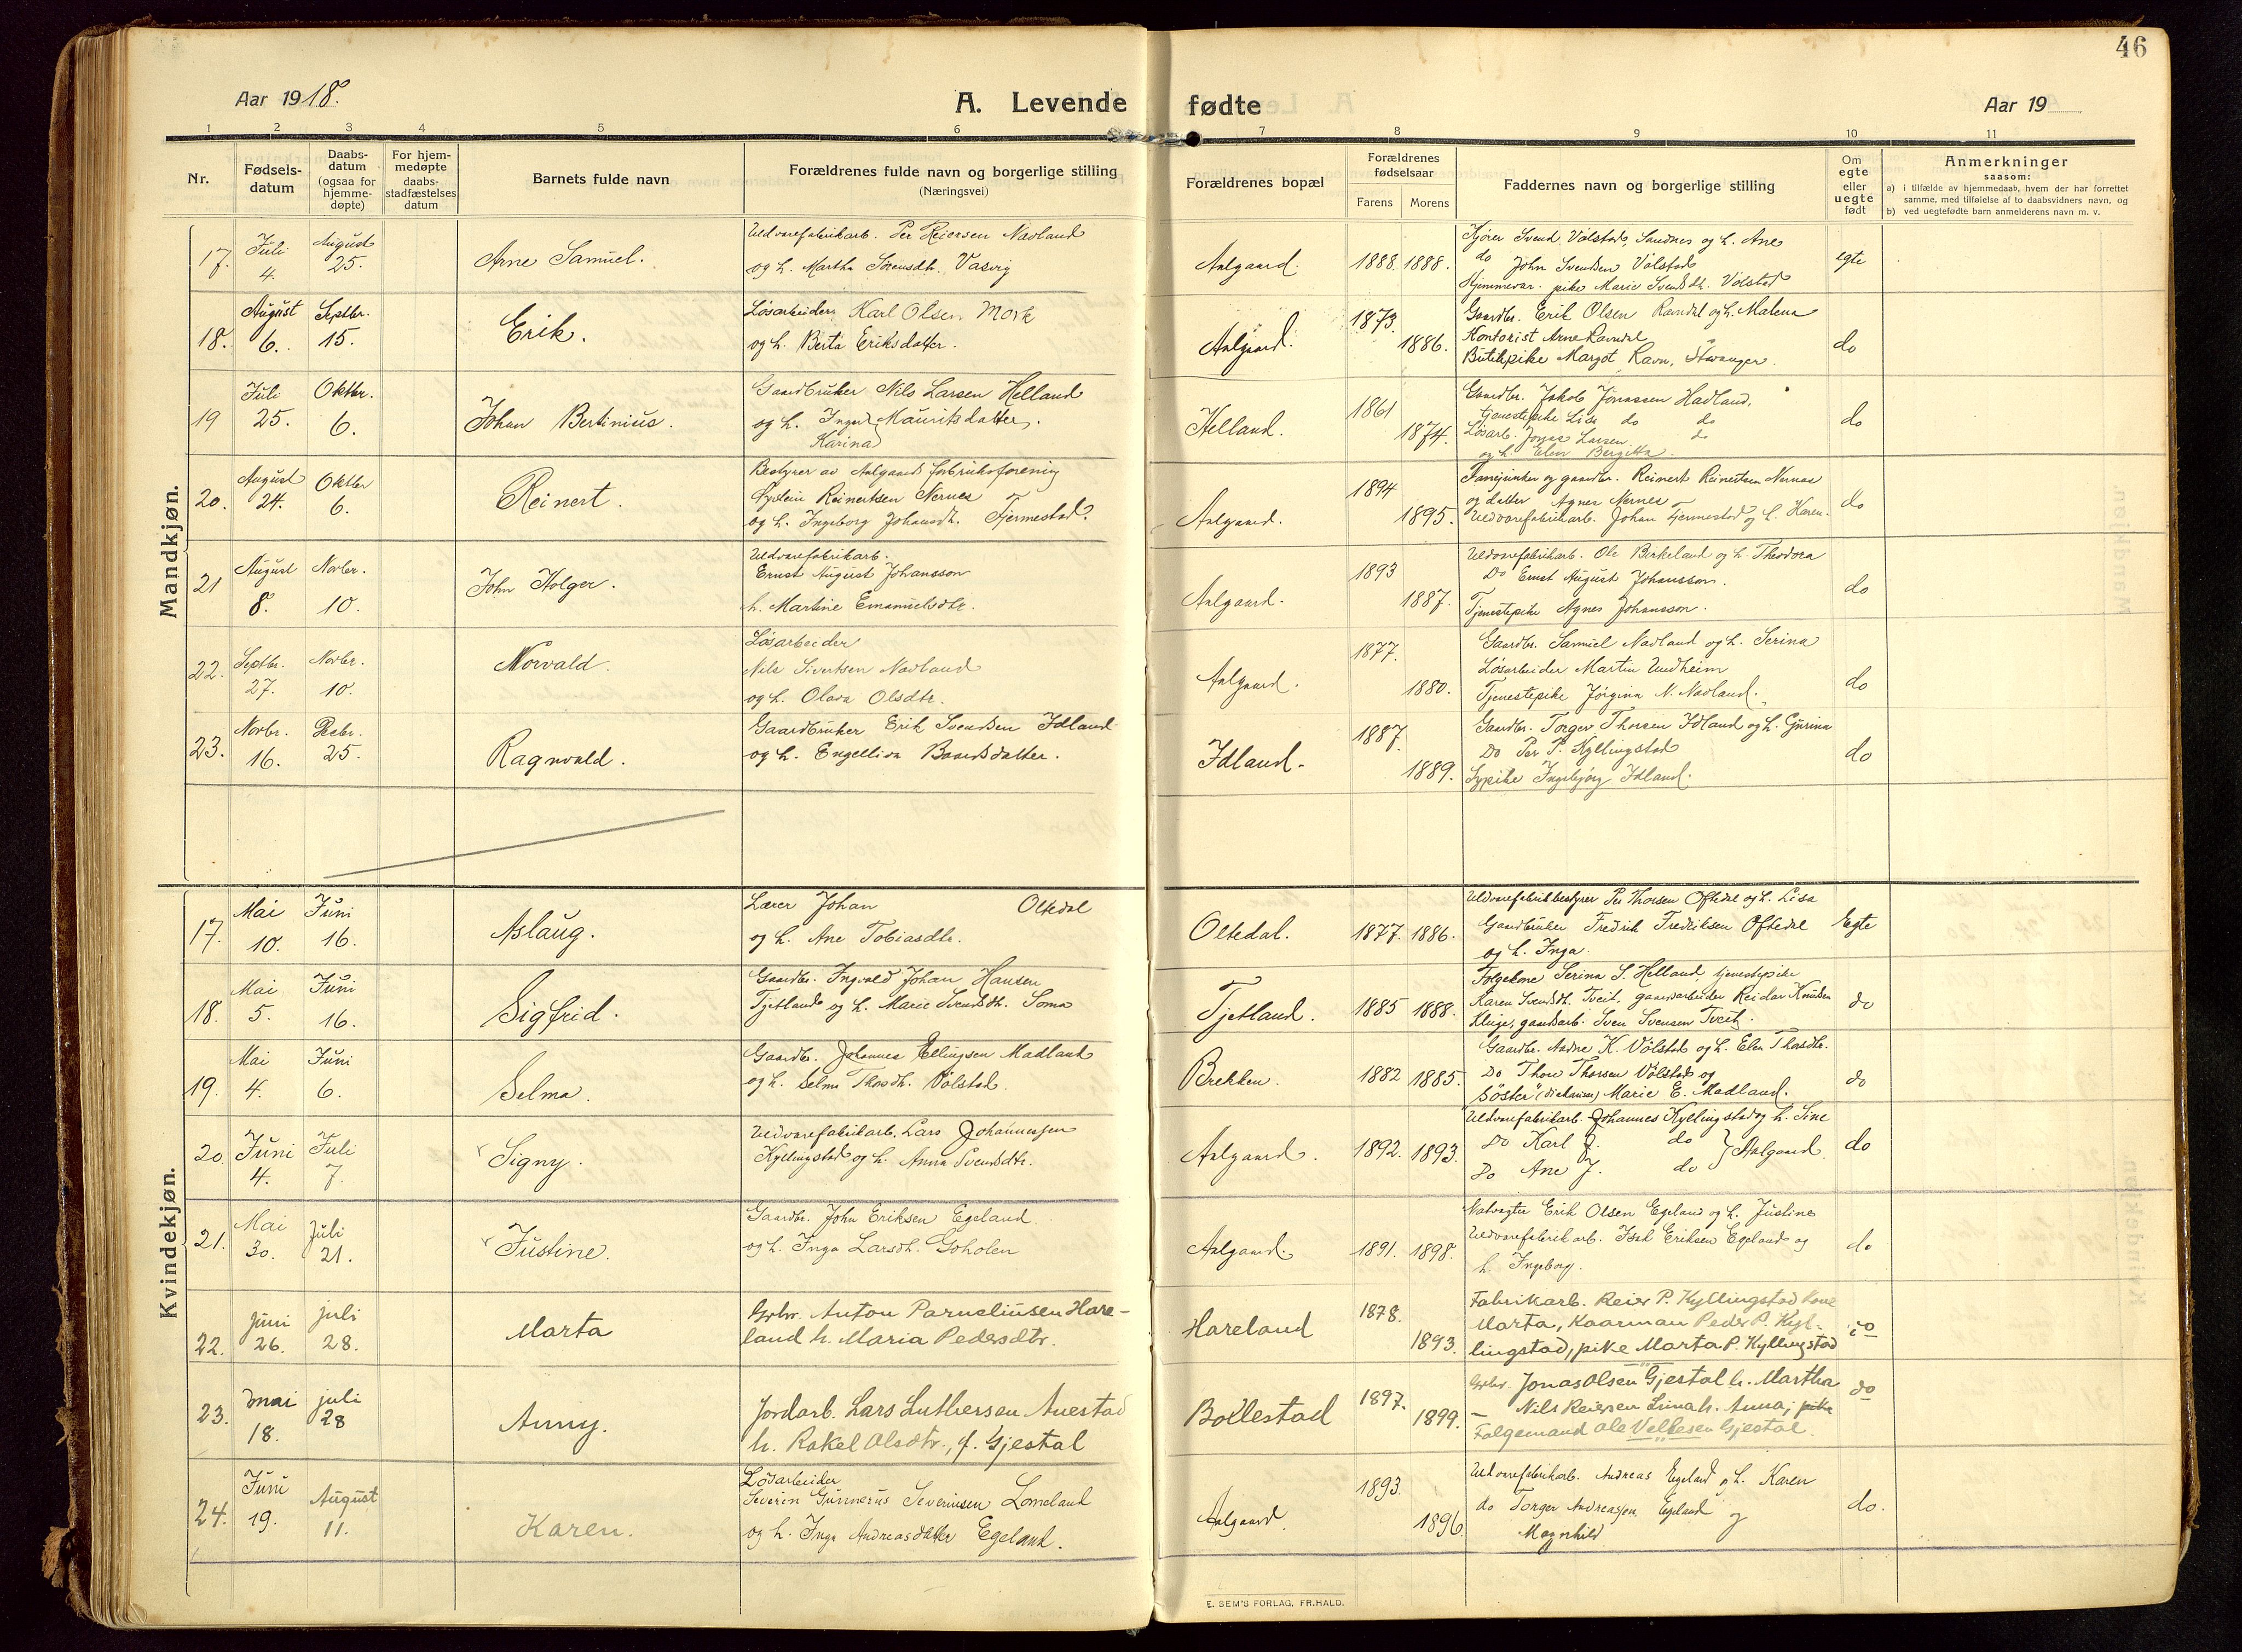 46
Aar 1918.
A. Levende fødte
Aar 19
1 2 3 4 5 6 7 8 9 10 11
Nr.
Fødsels-
datum
Daabs-
datum
(ogsaa for
hjemme-
døpte)
For hjem-
medøpte
daabs-
stadfæstelses
datum
Barnets fulde navn
Forældrenes fulde navn og borgerlige stilling
(Næringsvei)
Forældrenes bopæl
Forældrenes
fødselsaar
Farens Morens
Faddernes navn og borgerlige stilling
Om
egte
eller
uegte
født
Anmerkninger
saasom:
a) i tilfælde av hjemmedaab, hvem der har forrettet
samme, med tilføielse af to daabsvidners navn, og
b) ved uegtefødte barn anmelderens navn m. v.
Mandkjøn.
17. Juli 4. August 25.
Arne Samuel.
Uldvarefabrikarb. Per Reiersen Navland
og h. Martha Sørensdtr. Vasvig
Aalgaard. 1888. 1888.
Kjører Svend Volstad, Sandnes og h. Ane
do John Svendsen Volstad
Hjemmevær. pike Marie Svendsdtr. Volstad
egte
18. August 6. Septbr. 15.
Erik.
Løsarbeider Karl Olsen Mork
og h. Berta Eriksdatter.
Aalgaard. 1873. 1886.
Gaardbr. Erik Olsen Ravndal og h. Malena
Kontorist Arne Ravndal
Butikpike Margot Ravn, Stavanger.
do
19 Juli 25. Oktbr. 6.
Johan Bertinius.
Gaardbruker Nils Larsen Helland
og h. Inger Mauritsdatter.
Karina
Helland. 1861 1874.
Gaardbr. Jakob Jonassen Hadland,
tjenestepike Lisa do do
Løsarb. Jonas Larsen do
og h. Elen Bergitta.
do
20. August 24. Oktbr 6.
Reinert.
Bestyrer av Aalgaards forbruksforening
Øystein Reinertsen Nernes
og h. Ingeborg Johansdtr. Tjermestad.
Aalgaard. 1894 1895.
og gaardbr. Reinert Reinertsen Nernes
og datter Agnes Nernes
Uldvarefabrikarb. Johan Tjermestad og h. Karen.
do
21 August 8. Novbr. 10.
John Holger.
Uldvarefabrikarb.
Ernst August Johansson
h. Martine Emanuelsdtr.
Aalgaard. 1893 1887.
Uldvarefabrikarb. Ole Birkeland og h. Theodora
Do Ernst August Johansson.
Tjenestepike Agnes Johansson.
do
22. Septbr. 27. Novbr. 10.
Norvald.
Løsarbeider
Nils Sivertsen Navland
og h. Olava Olsdtr.
Aalgaard. 1877. 1880.
Gaardbr. Samuel Navland og h. Serina
Løsarbeider Martin Undheim
Tjenestepike Jørgina N. Navland.
do
23. Novbr. 16. Decbr. 25.
Ragnvald.
Gaardbruker Erik Svendsen Idland
og h. Engelliva Baardsdatter.
Idland. 1887. 1889.
Gaardbr. Torger Thorsen Idland og h. Gurina
Do Per P. Kyllingstad
Sypike Ingebjørg Idland.
do
Kvindekjøn.
17. Mai 10. Juni 16.
Aslaug.
Lærer Johan Oltedal
og h. Ane Tobiasdtr.
Oltedal. 1877. 1886.
Uldvarefabrikbestyrer Per Thorsen Oftedal og h. Lisa
Gaardbruker Fredrik Fredriksen Oftedal
og h. Inga.
Egte
18. Mai 5. Juni 16.
Sigfrid.
Gaardbr. Ingvald Johan Hansen
Tjetland og h. Marie Svendsdtr. Soma
Tjetland. 1885 1888.
Folgekone Serina S. Helland tjenestepike
Karen Svendsdtr. Tveit, gaardsarbeider Reidar Knudsen
Kluge, gaardsarb. Sven Svensen Tveit.
do
19. Mai 4. Juni 6.
Selma.
Gaardbr. Johannes Ellingsen Madland
og h. Selma Thorsdtr. Volstad.
Brekken. 1882 1885.
Gaardbr. Andre K. Volstad og h. Elen Thorsdtr.
Do Thore Thorsen Volstad og
"Søster" (diakonisse) Marie E. Madland.
do
20. Juni 4. Juli 7.
Signy.
Uldvarefabrikarb. Lars Johannesen
Kyllingstad og h. Anna Svendsdtr.
Aalgaard. 1892. 1893.
Uldvarefabrikarb. Johannes Kyllingstad og h. Sine
Do Karl J. do
Do Ane J. do } Aalgaard.
do
21. Mai 30. Juli 21.
Justine.
Gaardbr. John Eriksen Egeland
og h. Inga Larsdtr. Goholen
Aalgaard. 1891. 1898.
Natvagter Erik Olsen Egeland og h. Justine
Uldvarefabrikarb. Isak Eriksen Egeland og
h. Ingeborg.
do
22. juni 26. juli 28.
Marta
Grbr. Anton Parneliussen Hare-
land h. Maria Pedersdtr.
Hareland 1878. 1893.
Fabrikarb. Reier P. Kyllingstad kone
Marta, Kaarman Peder P. Kyl-
lingstad, pike Marta P. Kyllingstad
do
23. mai 18. juli 28
Anny.
Jordarb. Lars Luthersen Auestad
h. Rakel Olsdtr., f. Gjestal
Bollestad 1897. 1899.
Grbr. Jonas Olsen Gjestal h. Martha
— Nils Reiersen Lima h. Anna, pike
Folgemand Ole Vellesen Gjestal.
do
24. Juni 19. August 11.
Karen.
Løsarbeider
Severin Gunnerus Severinsen Lomeland
og h. Inga Andreasdatter Egeland.
Aalgaard. 1893. 1896.
Uldvarefabrikarb. Andreas Egeland og h. Karen
do Torger Andreassen Egeland og
Magnhild
do.
E. SEM'S FORLAG, FR.HALD.